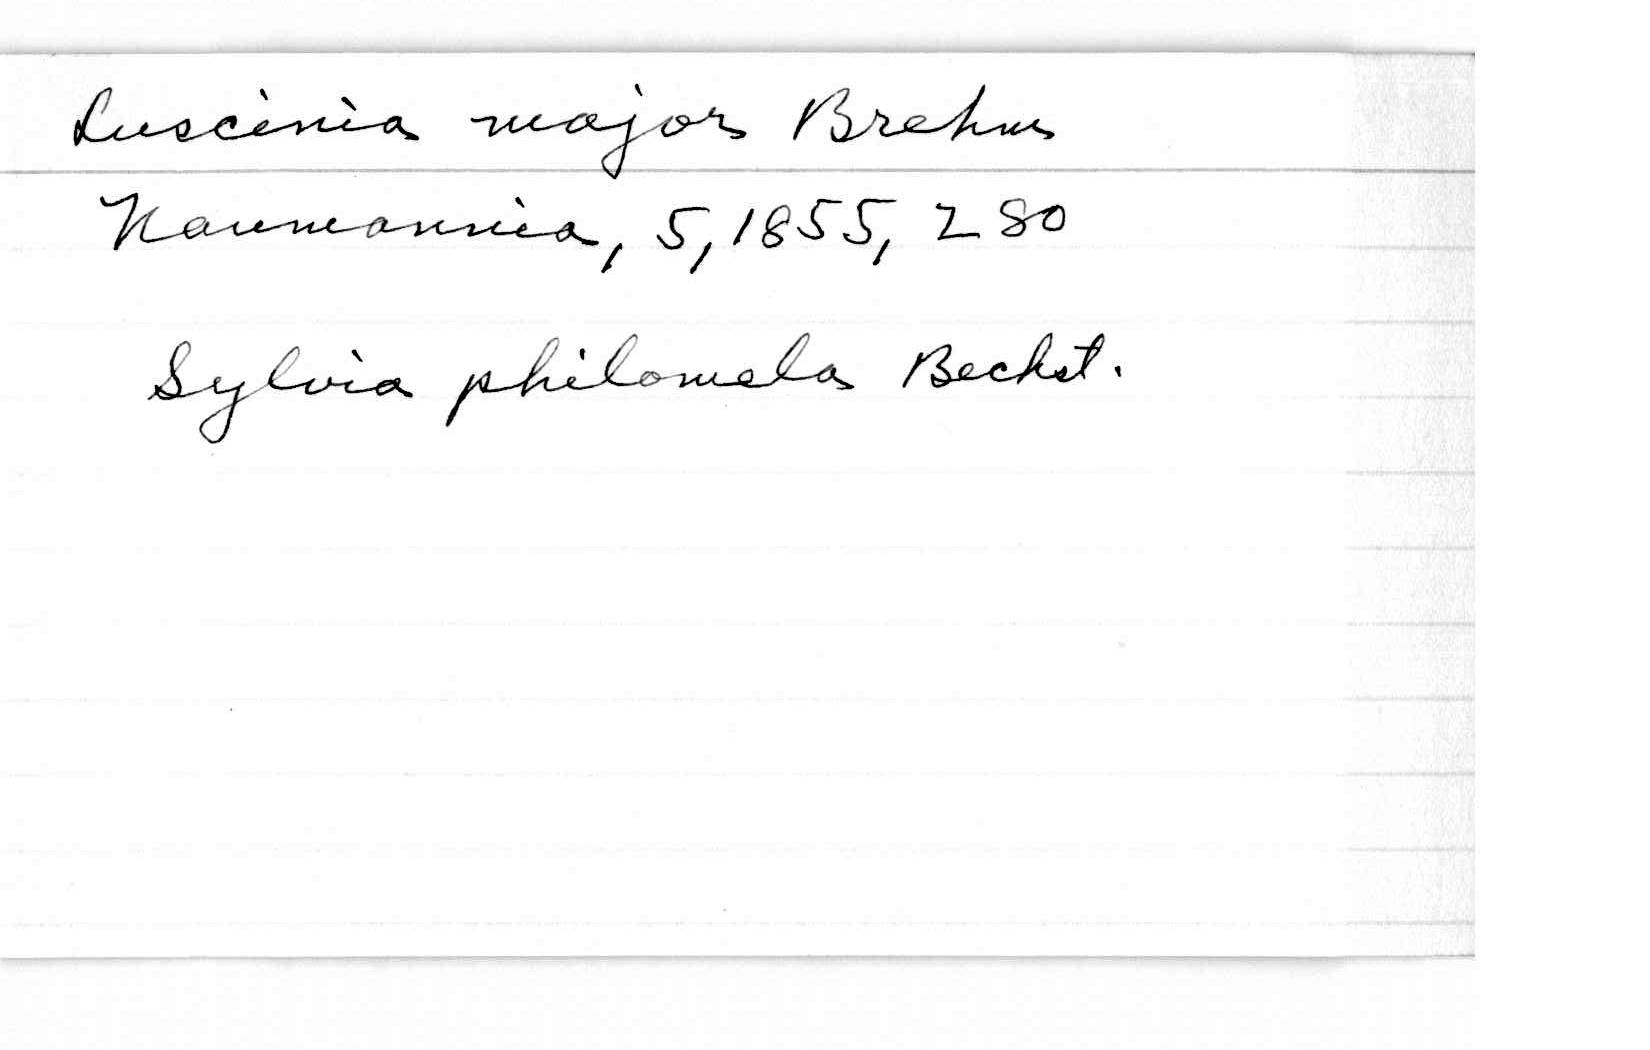 Luscinia major Brehm
Naumannia, 5, 1855, 280
Sylvia philomela Bechst.